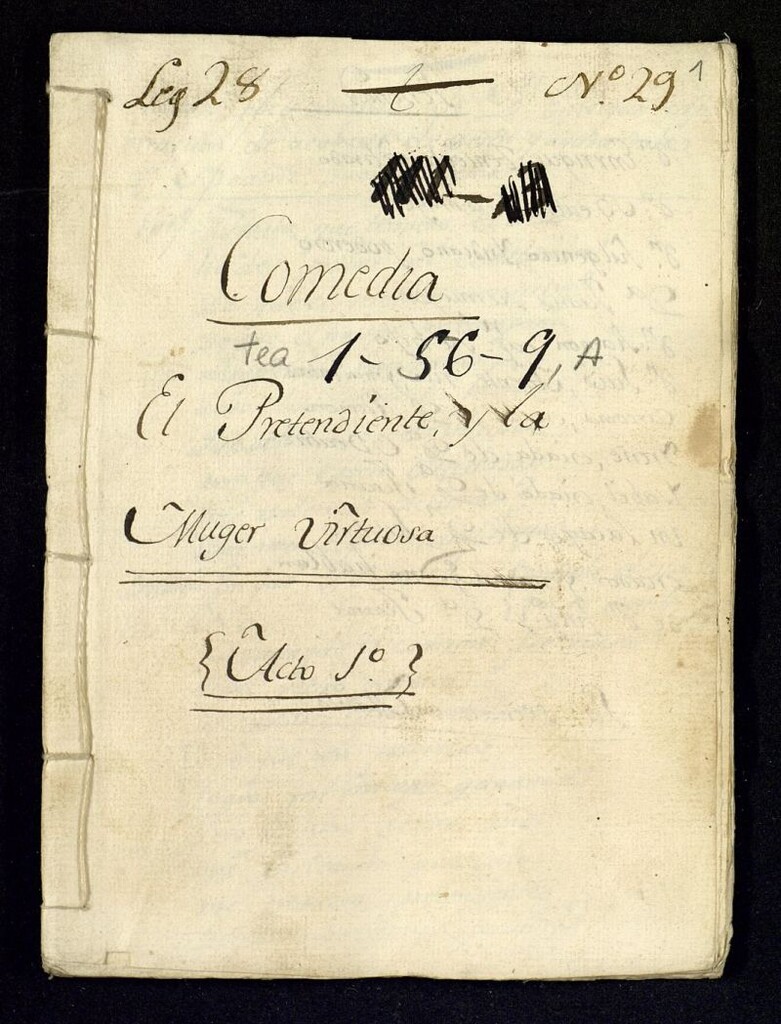 Leg 28 t Nº 29 1
Comedia
tea 1-56-9, A
El Pretendiente, y la
Muger Virtuosa
{Acto 1º}